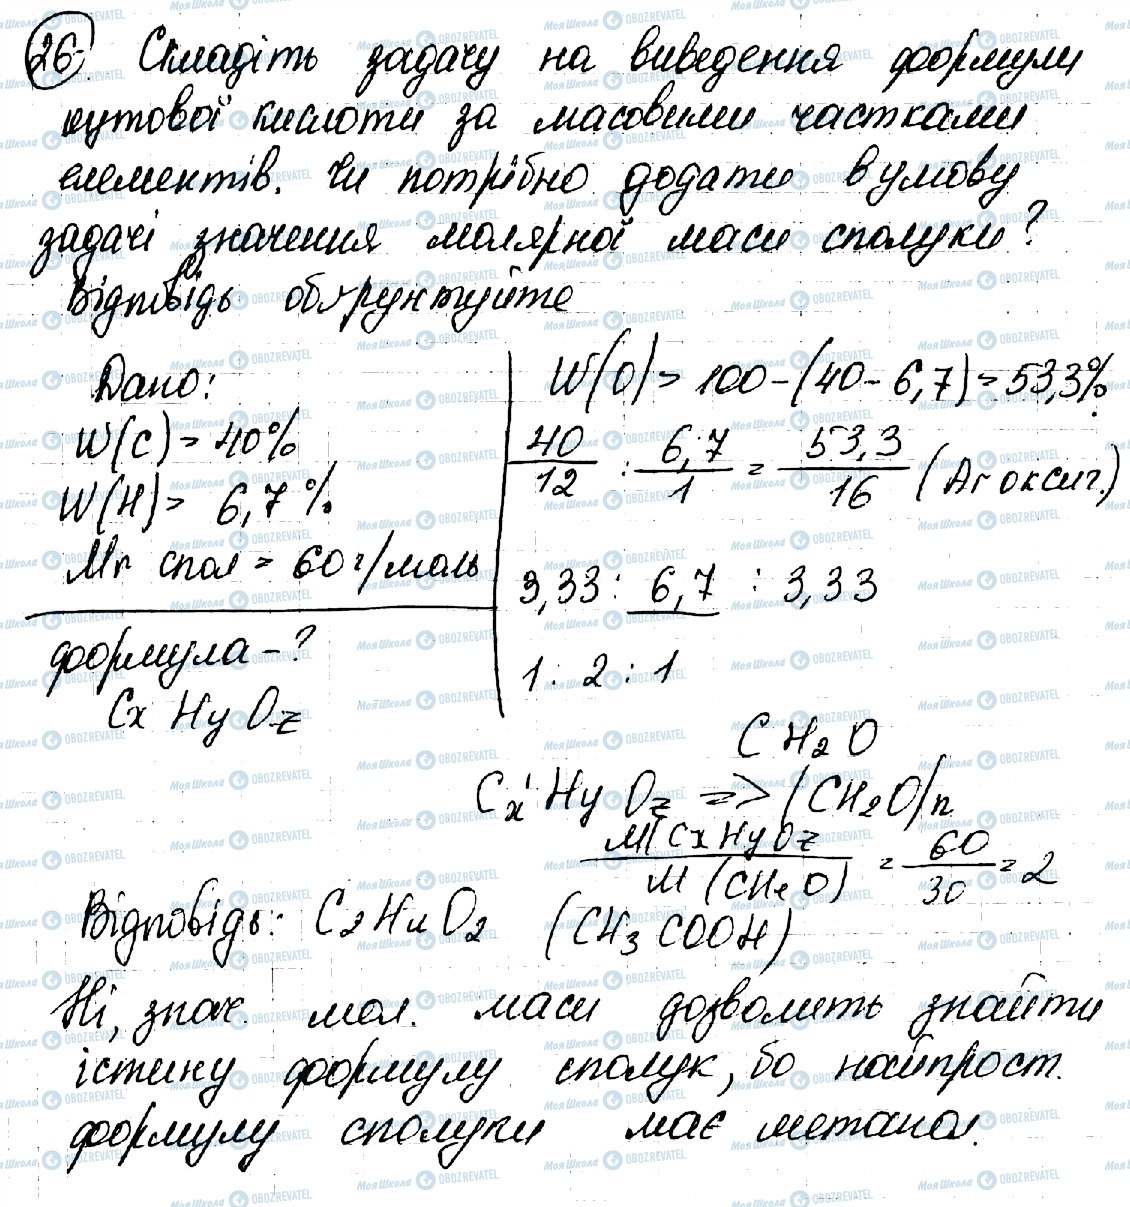 26. Складіть задачу на виведення формули
оцтової кислоти за масовими частками
елементів. Чи потрібно додати в умову
задачі значення молярної маси сполуки?
Відповідь обґрунтуйте
Дано:
W(C) = 40%
W(H) = 6,7%
Mr спол = 60 г/моль
формула - ?
Cx Hy Oz
W(O) = 100 - (40 - 6,7) = 53,3%
40/12 : 6,7/1 = 53,3/16 (Ar оксиг.)
3,33 : 6,7 : 3,33
1 : 2 : 1
CH2O
Cx Hy Oz => (CH2O)n
M(CxHyOz)/M(CH2O) = 60/30 = 2
Відповідь: C2H4O2 (CH3COOH)
Ні, знач. мол. маси дозволить знайти
істину формулу сполук, бо найпрост.
формулу сполуки має метанал.